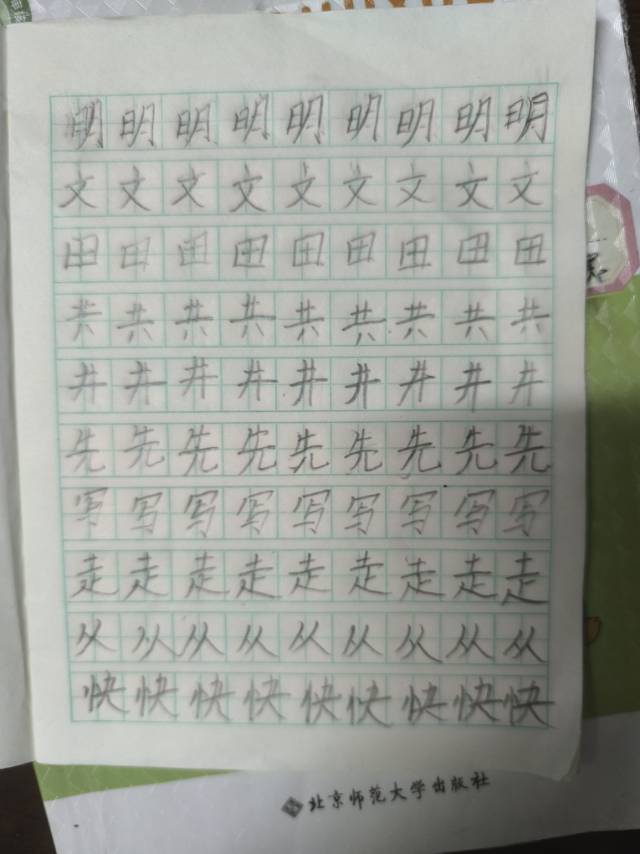 明明明明明明明明明
文文文文文文文文文
田田田田田田田田田
共共共共共共共共共
井井井井井井井井井
先先先先先先先先先
写写写写写写写写写
走走走走走走走走走
从从从从从从从从从
快快快快快快快快快
北京师范大学出版社